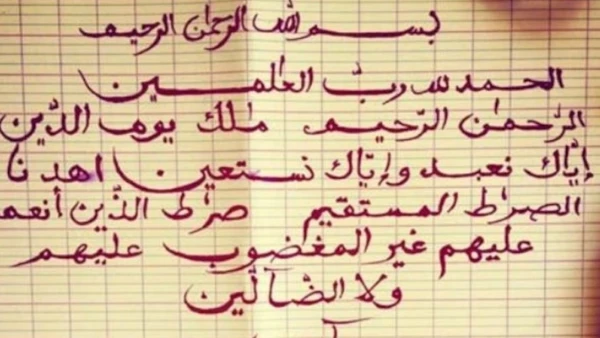 بسم الله الرحمن الرحيم
الحمد لله ربّ العلمين
الرّحمن الرّحيم ملك يوم الدّين
إيّاك نعبد وإيّاك نستعين اهدنا
الصراط المستقيم صراط الذّين أنعم
عليهم غير المغضوب عليهم
ولا الضآلّين